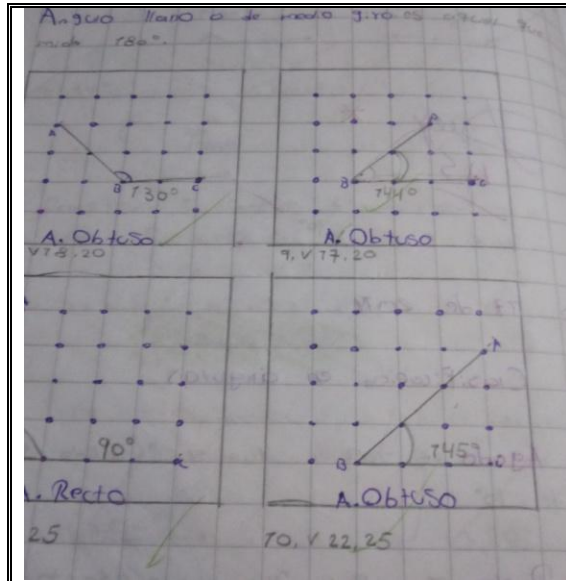 Angulo llano o de medio giro es aquel que
mide 180°.
A
B
C
130°
A. Obtuso
V 18, 20
A
B
C
144°
A. Obtuso
9, V 17, 20
90°
C
A. Recto
25
A
B
C
145°
A. Obtuso
10, V 22, 25